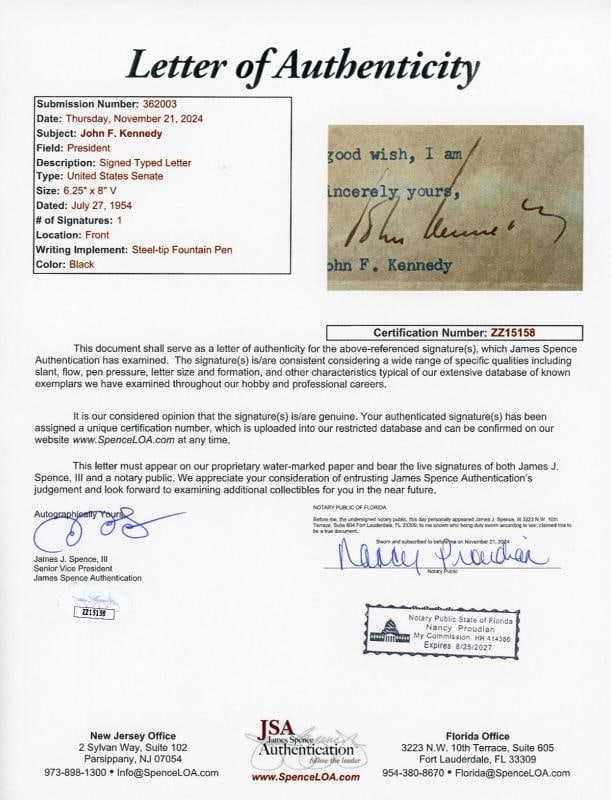 Letter of Authenticity
Submission Number: 362003
Date: Thursday, November 21, 2024
Subject: John F. Kennedy
Field: President
Description: Signed Typed Letter
Type: United States Senate
Size: 6.25" x 8" V
Dated: July 27, 1954
# of Signatures: 1
Location: Front
Writing Implement: Steel-tip Fountain Pen
Color: Black
good wish, I am
incerely yours,
John Kennedy
ohn F. Kennedy
Certification Number: ZZ15158
This document shall serve as a letter of authenticity for the above-referenced signature(s), which James Spence
Authentication has examined. The signature(s) is/are consistent considering a wide range of specific qualities including
slant, flow, pen pressure, letter size and formation, and other characteristics typical of our extensive database of known
exemplars we have examined throughout our hobby and professional careers.
It is our considered opinion that the signature(s) is/are genuine. Your authenticated signature(s) has been
assigned a unique certification number, which is uploaded into our restricted database and can be confirmed on our
website www.SpenceLOA.com at any time.
This letter must appear on our proprietary water-marked paper and bear the live signatures of both James J.
Spence, III and a notary public. We appreciate your consideration of entrusting James Spence Authentication's
judgement and look forward to examining additional collectibles for you in the near future.
Autographically Yours,
James J. Spence, III
Senior Vice President
James Spence Authentication
ZZ15158
NOTARY PUBLIC OF FLORIDA
Before me, the undersigned notary public, this day personally appeared James J. Spence, III 3223 N.W. 10th
Terrace, Suite 604 Fort Lauderdale, FL 33309, to me known who being duly sworn according to law, claimed this to
be a true document.
Sworn and subscribed to before me on November 21, 2024
Nancy Proudian
Notary Public
Notary Public State of Florida
Nancy Proudian
My Commission HH 414386
Expires 8/25/2027
New Jersey Office
2 Sylvan Way, Suite 102
Parsippany, NJ 07054
973-898-1300 • Info@SpenceLOA.com
JSA
James Spence
Authentication
follow the leader
www.SpenceLOA.com
Florida Office
3223 N.W. 10th Terrace, Suite 605
Fort Lauderdale, FL 33309
954-380-8670 • Florida@SpenceLOA.com